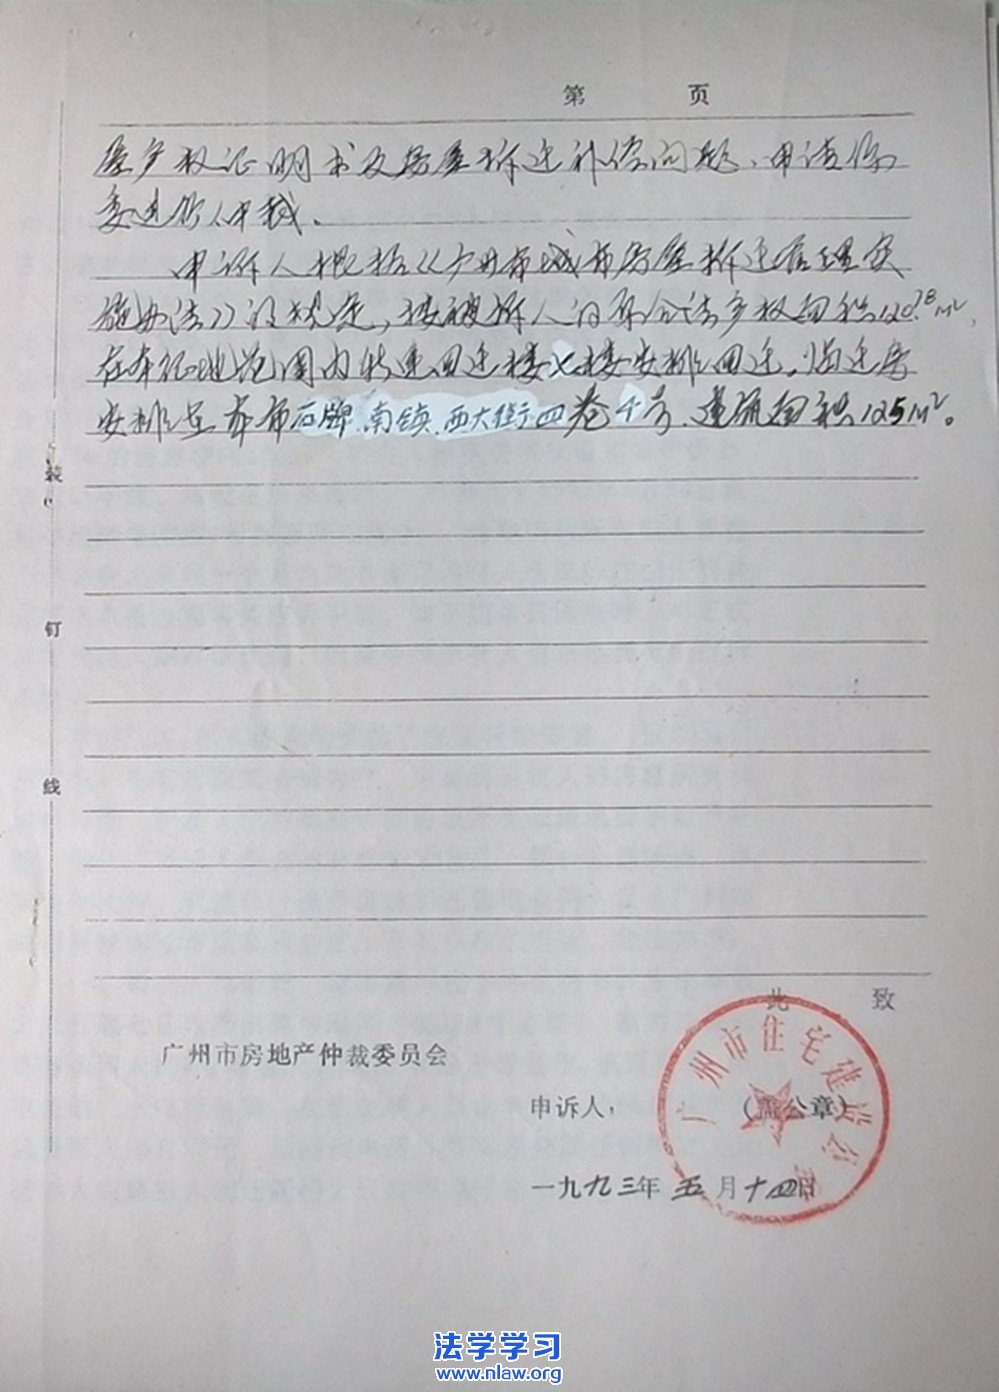 第 页
屋产权证明书及房屋拆迁补偿问题,申请你
委进行仲裁。
申诉人根据《广州市城市房屋拆迁管理实
施办法》的规定,按被诉人的原合法产权面积120.78m²,
在本征地范围内新建回迁楼 楼安排回迁。临迁房
安排在本市石牌.南镇.西大街四巷 号.建筑面积125m²。
装
订
线
此 致
广州市房地产仲裁委员会
申诉人: (盖公章)
广州市住宅建设公司
一九九三年五月十四日
法学学习
www.nlaw.org